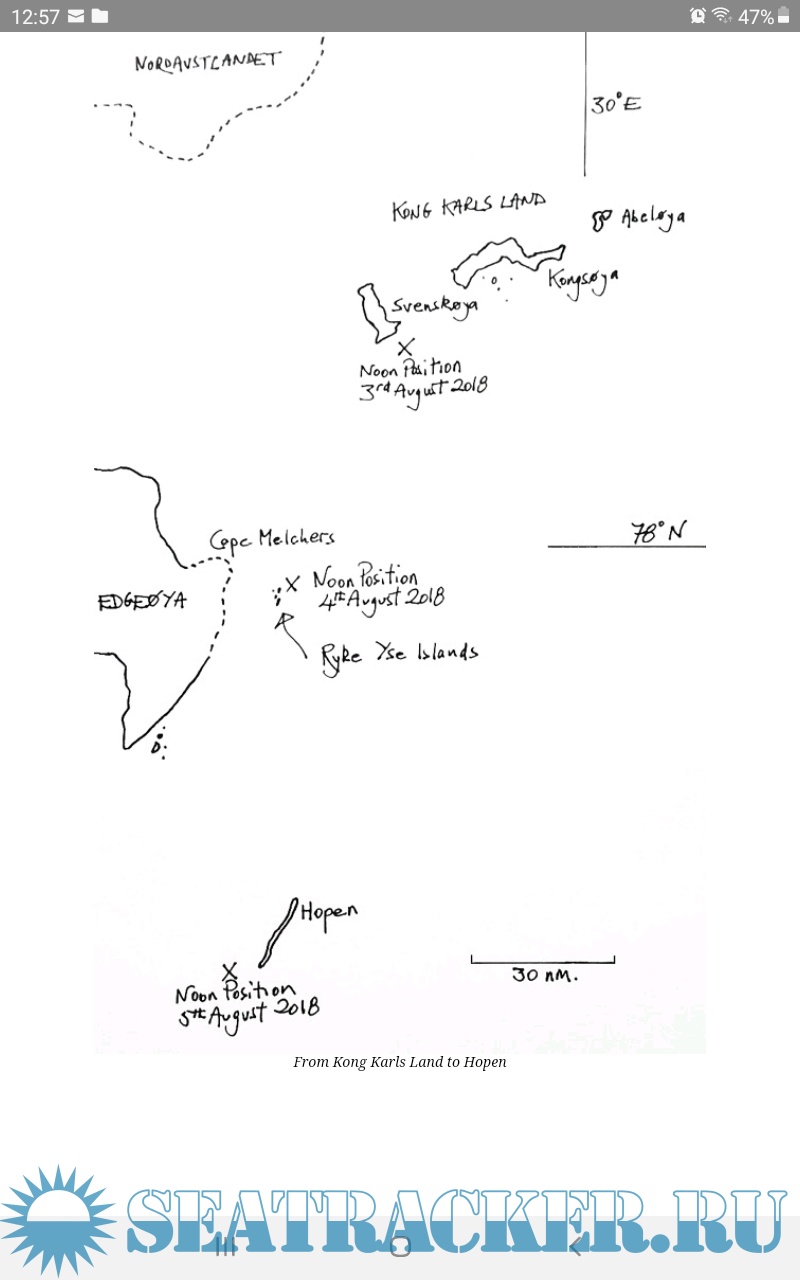 12:57 47%
NORDAUSTLANDET
30°E
KONG KARLS LAND
Abeløya
Kongsøya
Svenskøya
Noon Position
3rd August 2018
78°N
Cape Melchers
Noon Position
4th August 2018
EDGEØYA
Ryke Yse Islands
Hopen
30 nm.
Noon Position
5th August 2018
From Kong Karls Land to Hopen
SEATRACKER.RU